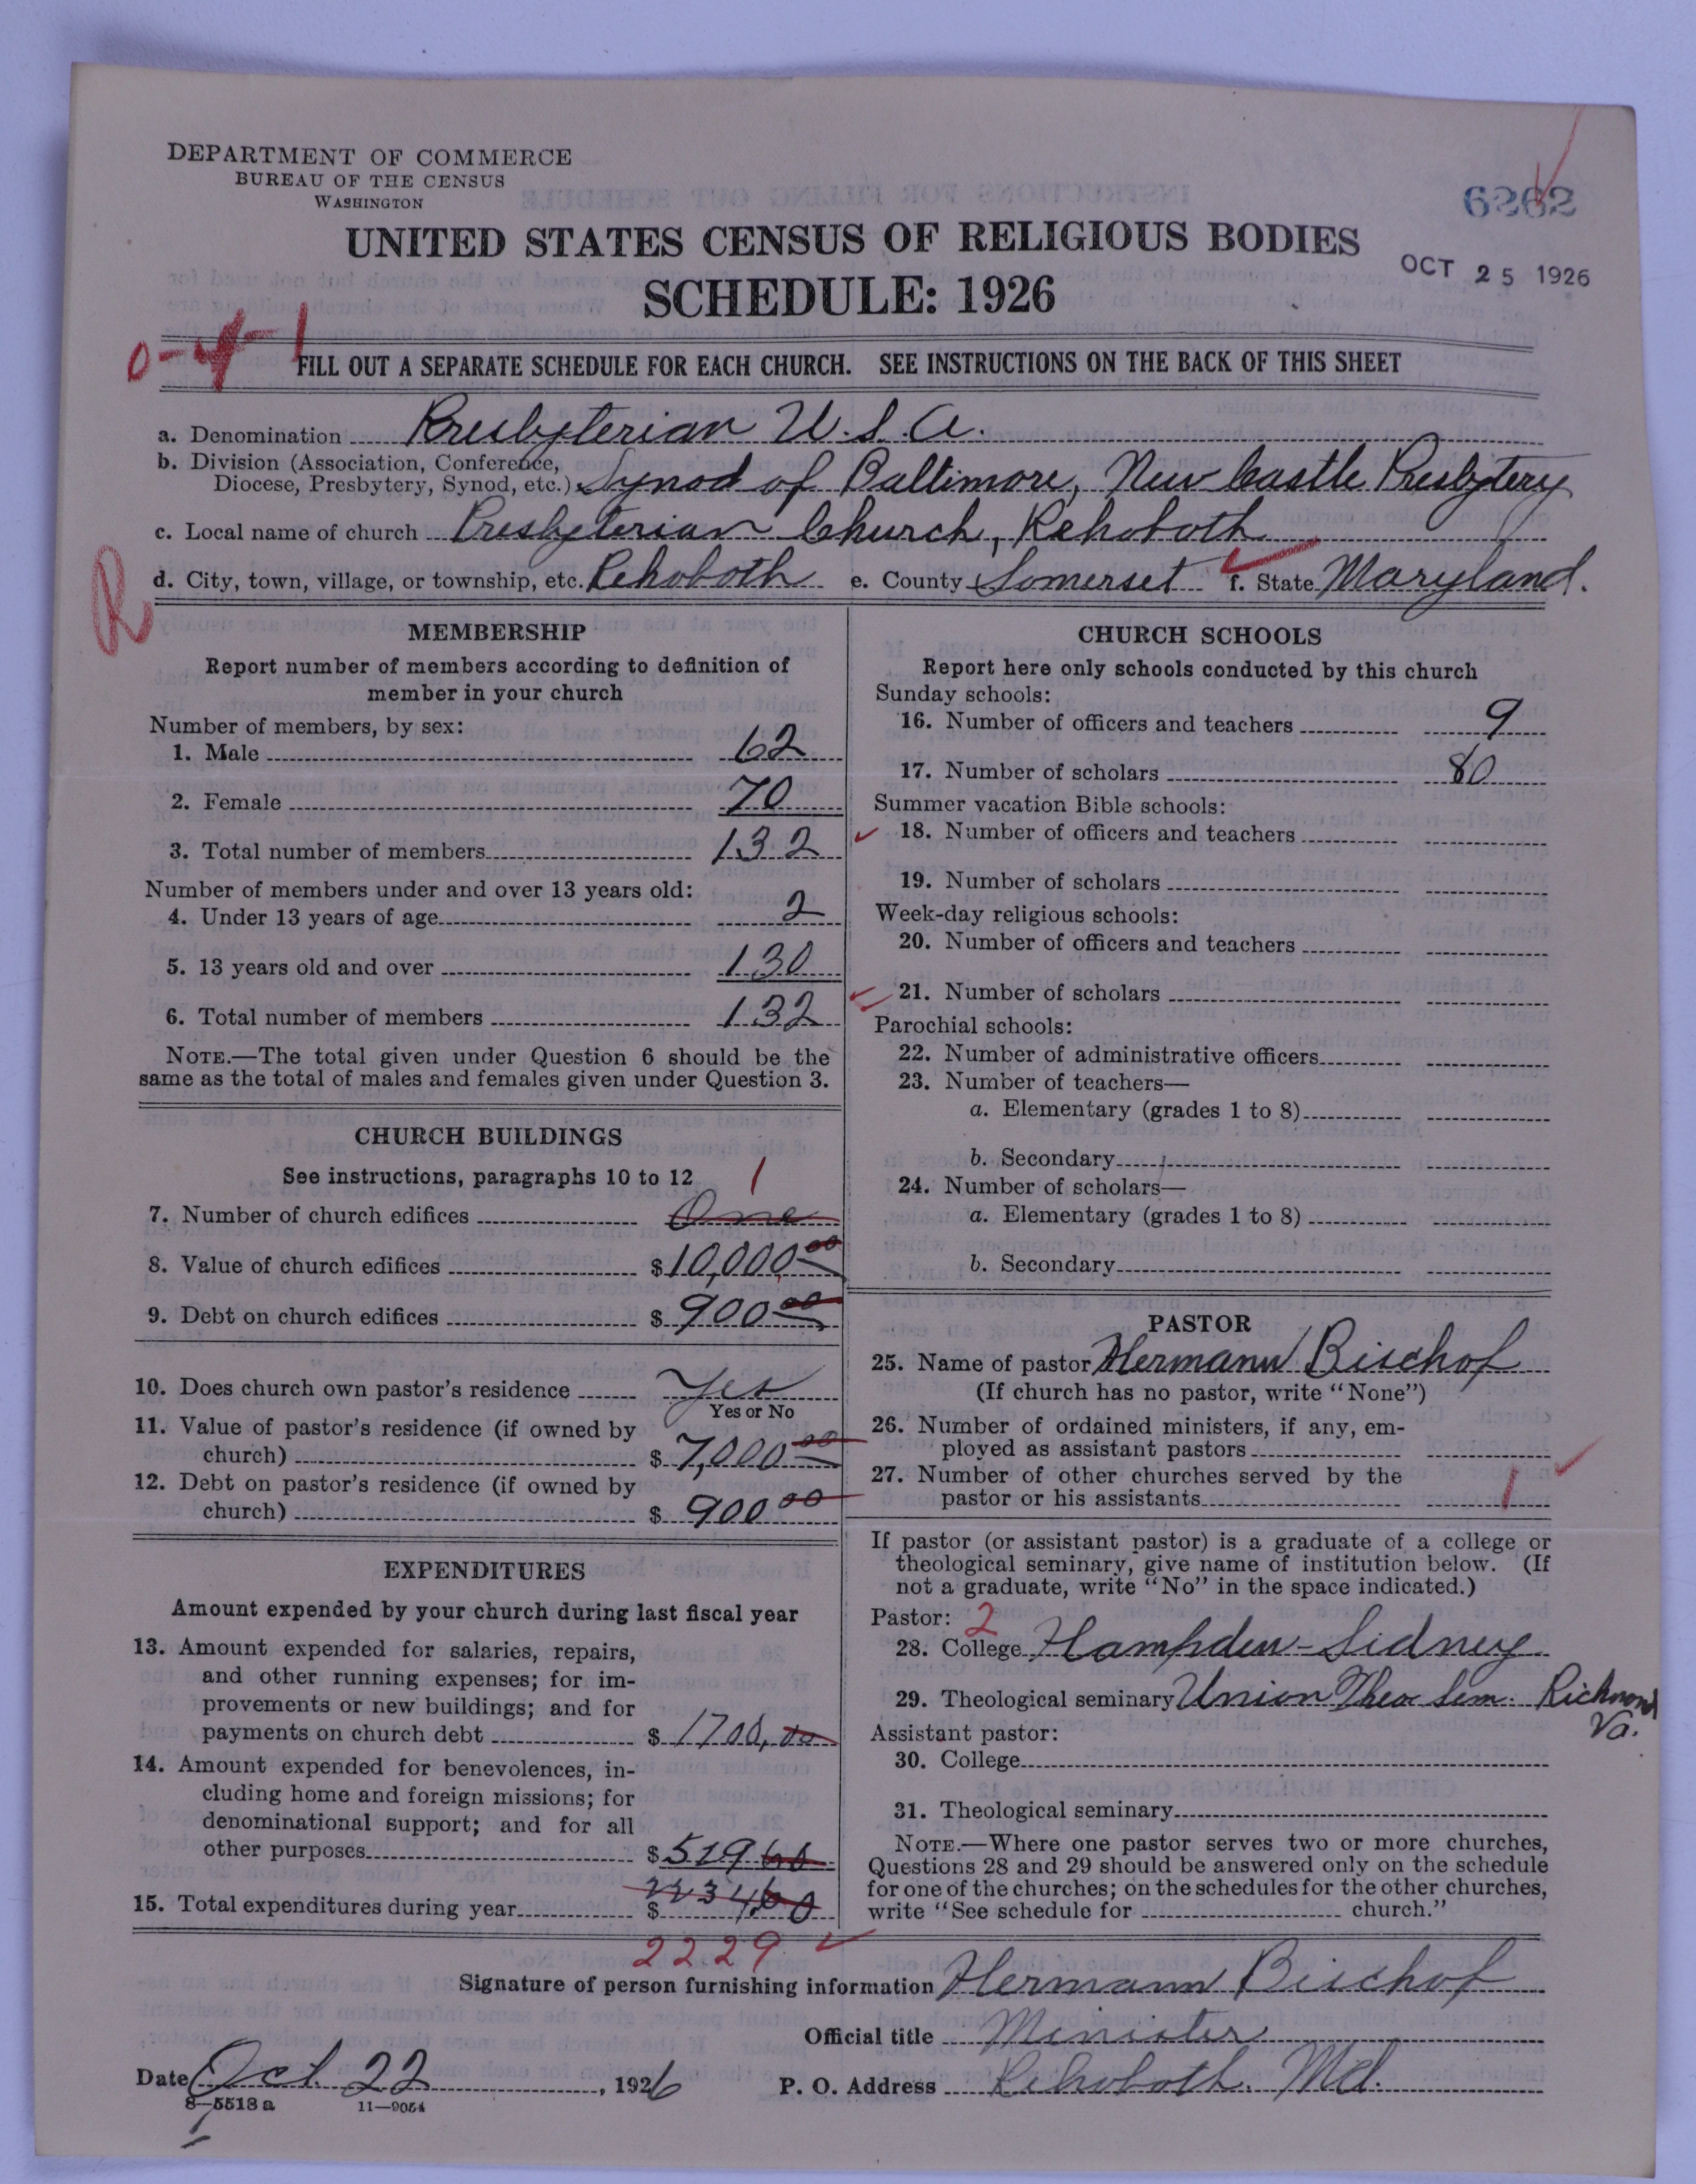 DEPARTMENT OF COMMERCE
BUREAU OF THE CENSUS
WASHINGTON
6262
UNITED STATES CENSUS OF RELIGIOUS BODIES
OCT 25 1926
SCHEDULE: 1926
0-4-1
FILL OUT A SEPARATE SCHEDULE FOR EACH CHURCH. SEE INSTRUCTIONS ON THE BACK OF THIS SHEET
a. Denomination Presbyterian U.S.A.
b. Division (Association, Conference,
Diocese, Presbytery, Synod, etc.) Synod of Baltimore, New Castle Presbytery
c. Local name of church Presbyterian Church, Rehoboth
R
d. City, town, village, or township, etc. Rehoboth e. County Somerset f. State Maryland.
MEMBERSHIP
Report number of members according to definition of
member in your church
Number of members, by sex:
1. Male 62
2. Female 70
3. Total number of members 132
Number of members under and over 13 years old:
4. Under 13 years of age 2
5. 13 years old and over 130
6. Total number of members 132
NOTE.—The total given under Question 6 should be the
same as the total of males and females given under Question 3.
CHURCH BUILDINGS
See instructions, paragraphs 10 to 12
1
7. Number of church edifices One
8. Value of church edifices $10,000.00
9. Debt on church edifices $ 900 00
10. Does church own pastor's residence Yes
Yes or No
11. Value of pastor's residence (if owned by
church) $ 7,000 00
12. Debt on pastor's residence (if owned by
church) $ 900 00
EXPENDITURES
Amount expended by your church during last fiscal year
13. Amount expended for salaries, repairs,
and other running expenses; for im-
provements or new buildings; and for
payments on church debt $ 1700,00
14. Amount expended for benevolences, in-
cluding home and foreign missions; for
denominational support; and for all
other purposes $529
15. Total expenditures during year $
2229
CHURCH SCHOOLS
Report here only schools conducted by this church
Sunday schools:
16. Number of officers and teachers 9
17. Number of scholars 80
Summer vacation Bible schools:
18. Number of officers and teachers
19. Number of scholars
Week-day religious schools:
20. Number of officers and teachers
21. Number of scholars
Parochial schools:
22. Number of administrative officers
23. Number of teachers—
a. Elementary (grades 1 to 8)
b. Secondary
24. Number of scholars—
a. Elementary (grades 1 to 8)
b. Secondary
PASTOR
25. Name of pastor Hermann Bischof
(If church has no pastor, write "None")
26. Number of ordained ministers, if any, em-
ployed as assistant pastors
27. Number of other churches served by the
pastor or his assistants 1
If pastor (or assistant pastor) is a graduate of a college or
theological seminary, give name of institution below. (If
not a graduate, write "No" in the space indicated.)
Pastor: 2
28. College Hampden-Sidney
29. Theological seminary Union Theo Sem. Richmond
Va.
Assistant pastor:
30. College
31. Theological seminary
NOTE.—Where one pastor serves two or more churches,
Questions 28 and 29 should be answered only on the schedule
for one of the churches; on the schedules for the other churches,
write "See schedule for church."
Signature of person furnishing information Hermann Bischof
Official title Minister
Date Oct. 22, 1926 P. O. Address Rehoboth. Md.
8—5518 a 11—9054